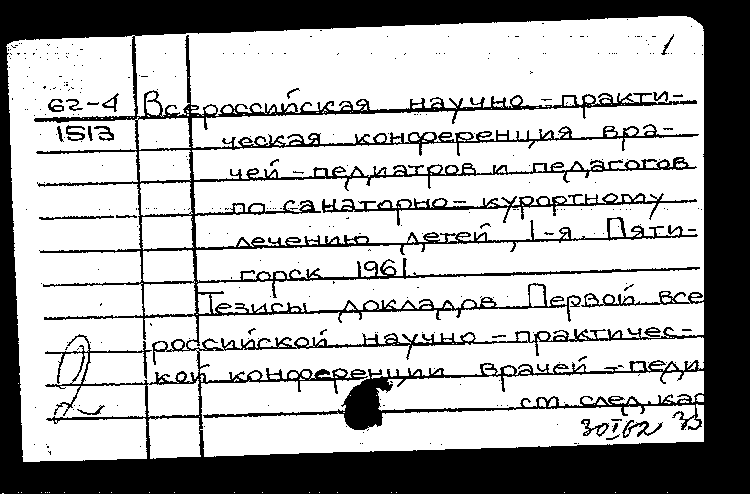 1
62-4 Всероссийская научно-практи-
1513 ческая конференция вра-
чей-педиатров и педагогов
по санаторно-курортному
лечению детей, 1-я. Пяти-
горск. 1961.
Тезисы докладов Первой все
российской научно-практичес-
кой конференции врачей-педи
2
см. след. кар
30 I 62 33